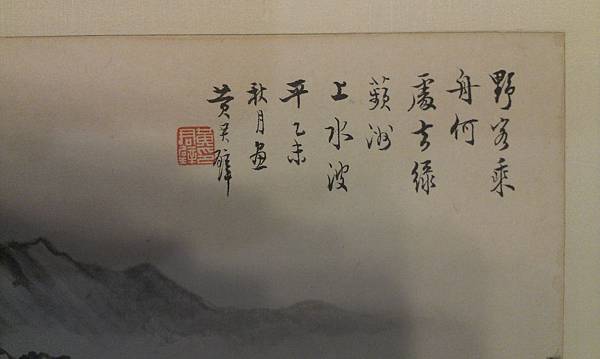 野客乘
舟何
處去綠
蘋洲
上水波
平乙未
秋月畫
黃君璧
黃印
君璧